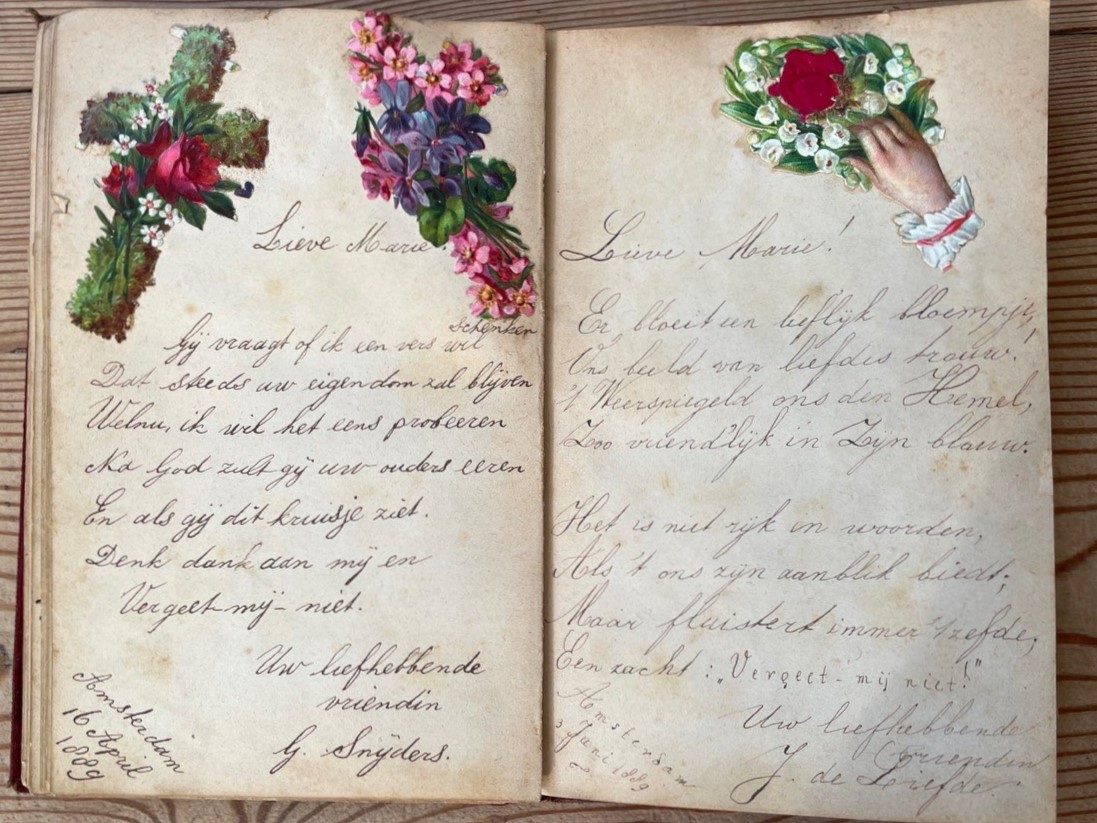 Lieve Marie!
schenken
Gij vraagt of ik een vers wil
Dat steeds uw eigendom zal blijven
Welnu, ik wil het eens probeeren
Na God zult gij uw ouders eeren
En als gij dit kruisje ziet.
Denk dank aan mij en
Vergeet-mij-niet.
Uw liefhebbende
vriendin
G. Snijders.
Amsterdam
16 April
1889
Lieve Marie!
Er bloeit een lieflijk bloempje,
Ons beeld van liefdes trouw!
't Weerspiegeld ons den Hemel,
Zoo vriend'lijk in Zijn blauw.
Het is niet rijk in woorden,
Als 't ons zijn aanblik biedt;
Maar fluistert immer 't zelfde,
Een zacht: „Vergeet-mij niet!"
Uw liefhebbende
vriendin
J. de Liefde.
Amsterdam
Juni 1889